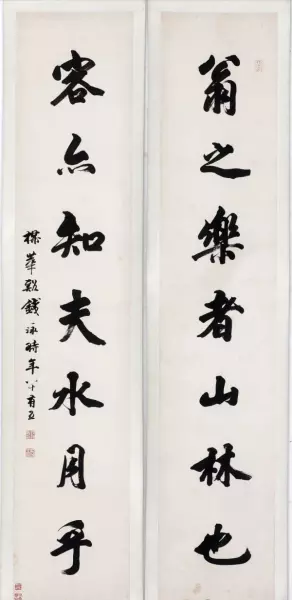 翁之樂者山林也
客亦知夫水月乎
梅華谿錢泳時年八十有五